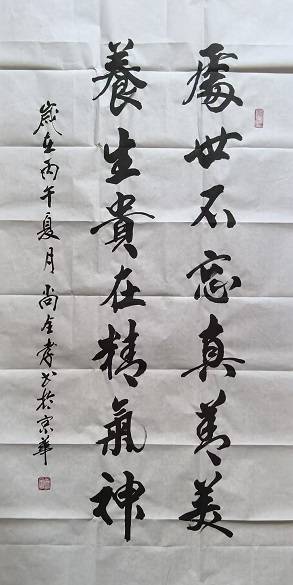 處世不忘真善美
養生貴在精氣神
歲在丙午夏月尚全孝书於京華